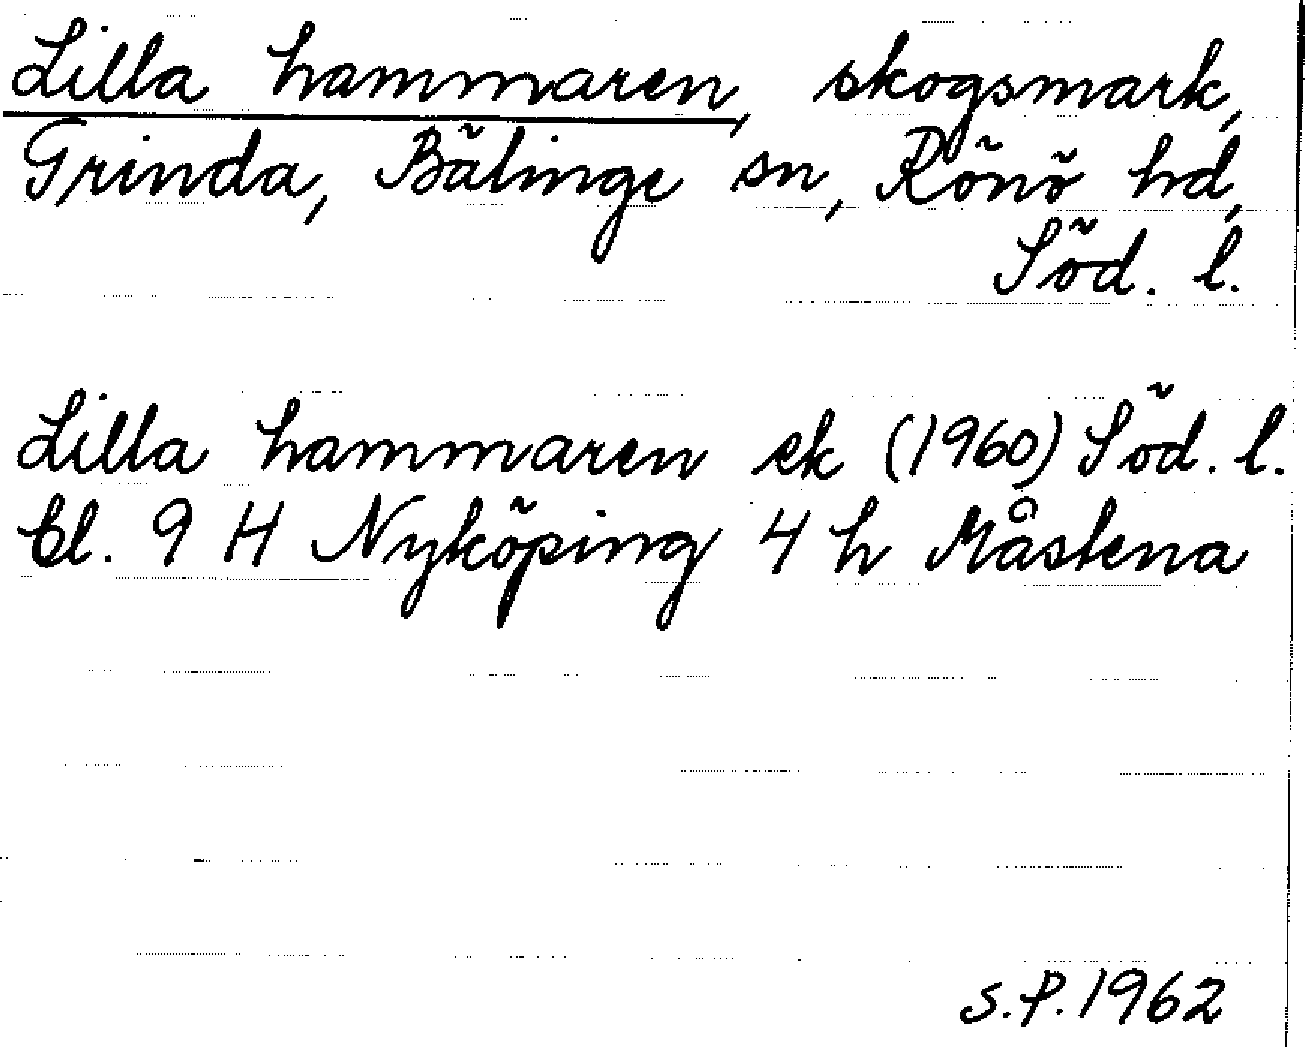 Lilla hammaren, skogsmark,
Grinda, Bälinge sn, Rönö hd,
Söd. l.
Lilla hammaren ek (1960) Söd. l.
bl. 9 H Nyköping 4 h Måstena
S.P. 1962